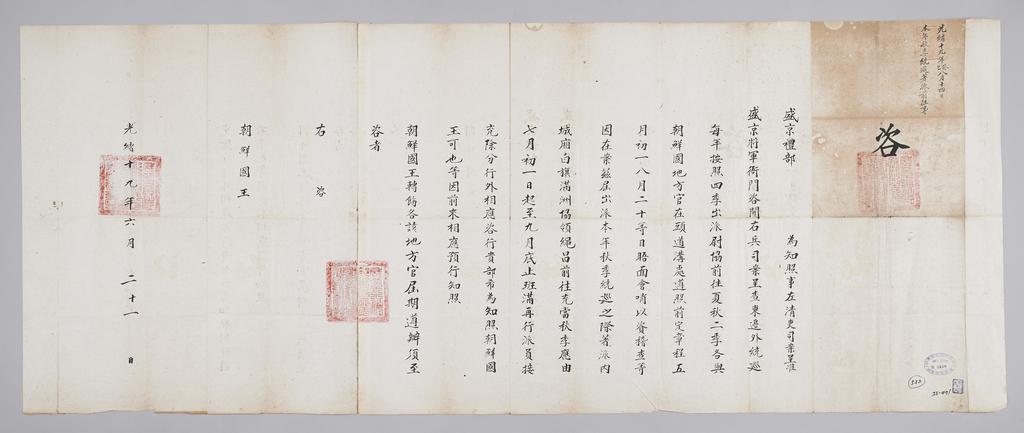 光緒十九年癸巳八月十四日
本年秋季統巡著派前往事
咨
盛京禮部 為知照事左清吏司案呈准
盛京將軍衙門咨開右兵司案呈查東邊外統巡
每年按照四季出派尉協前往夏秋二季各與
朝鮮國地方官在頭道溝處遵照前定章程五
月初一八月二十等日晤面會哨以資稽查等
因在案茲屆出派本年秋季統巡之際著派內
城廂白旗滿洲協領繩昌前往充當秋季應由
七月初一日起至九月底止班滿再行派員接
充除分行外相應咨行貴部希為知照朝鮮國
王可也等因前來相應預行知照
朝鮮國王轉飭各該地方官屆期遵辦須至
咨者
右咨
朝鮮國王
光緒十九年六月二十一日